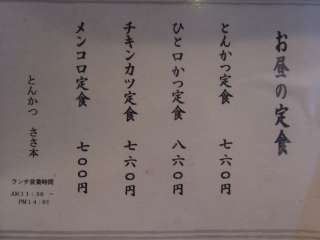 お昼の定食
とんかつ定食　七六〇円
ひと口かつ定食　八六〇円
チキンカツ定食　七六〇円
メンコロ定食　七〇〇円
とんかつ　ささ本
ランチ営業時間
AM11:30 ～
PM14:01